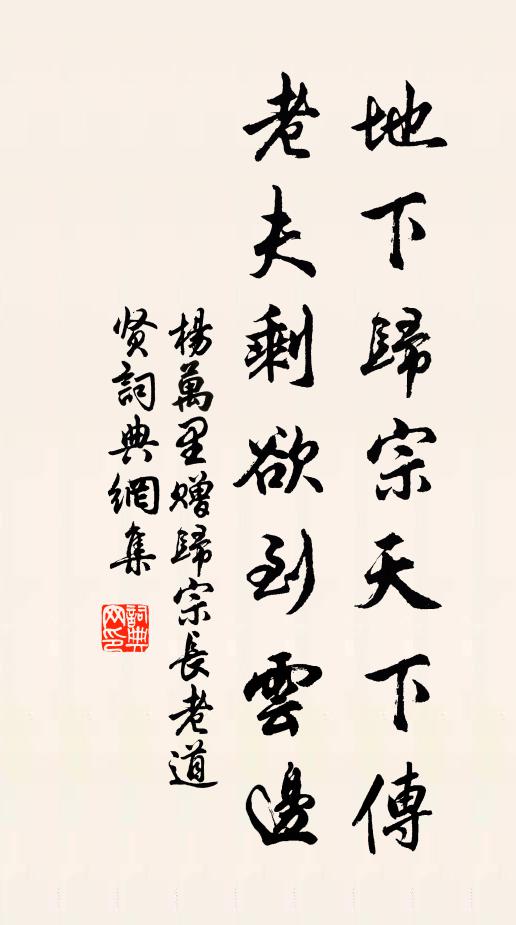 地下歸宗天下傳
老夫剩欲到雲邊
楊萬里贈歸宗長老道
贤詞典網集
詞典
网印